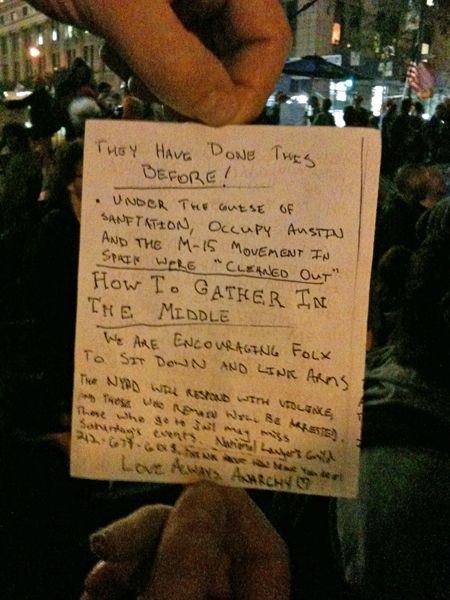 They Have Done This
Before!
• Under the guise of
sanftation, Occupy Austin
and the M-15 Movement in
Spain were "cleaned out"
How To Gather In
The Middle
We are encouraging folx
to sit down and link arms
The NYPD will respond with violence,
and those who remain will be arrested.
Those who go to jail may miss
Saturday's events. National Lawyers Guild
212-679-6018.
Love Always Anarchy ♡